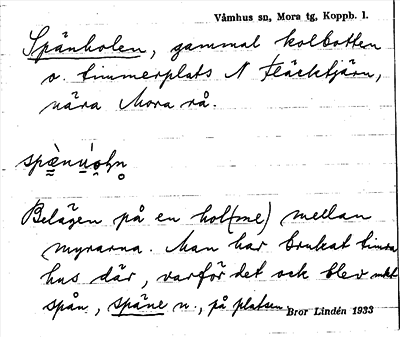 Våmhus sn, Mora tg, Koppb. l.
Spånholen, gammal kolbotten
o. timmerplats N Fläcktjärn,
nära Mora rå.
Belägen på en hol(me) mellan
myrarna. Man har brukat timra
hus där, varför det ock blev mkt
spån, späne n., på platsen
Bror Lindén 1933